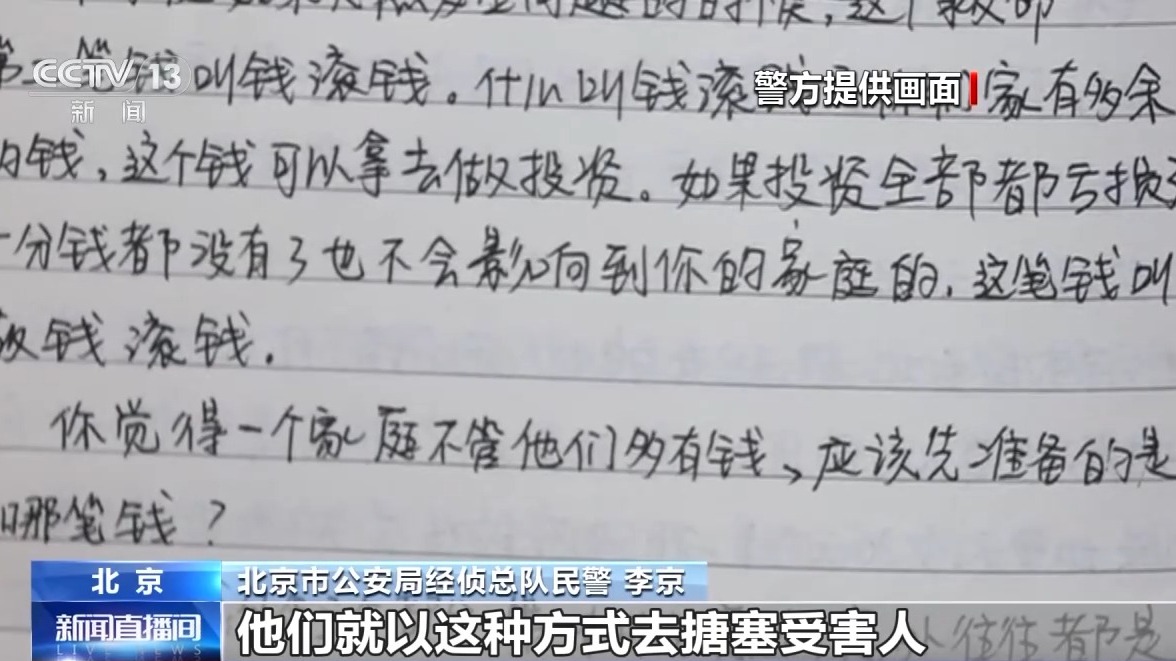 CCTV 13
新闻
警方提供画面
叫钱滚钱。什么叫钱滚 家有多余
钱,这个钱可以拿去做投资。如果投资全部都亏损
一分钱都没有了也不会影响到你的家庭的,这笔钱叫
钱滚钱.
你觉得一个家庭不管他们多有钱、应该先准备的是
哪笔钱?
北京
北京市公安局经侦总队民警 李京
新闻直播间
LIVE NEWS
他们就以这种方式去搪塞受害人
往往都是